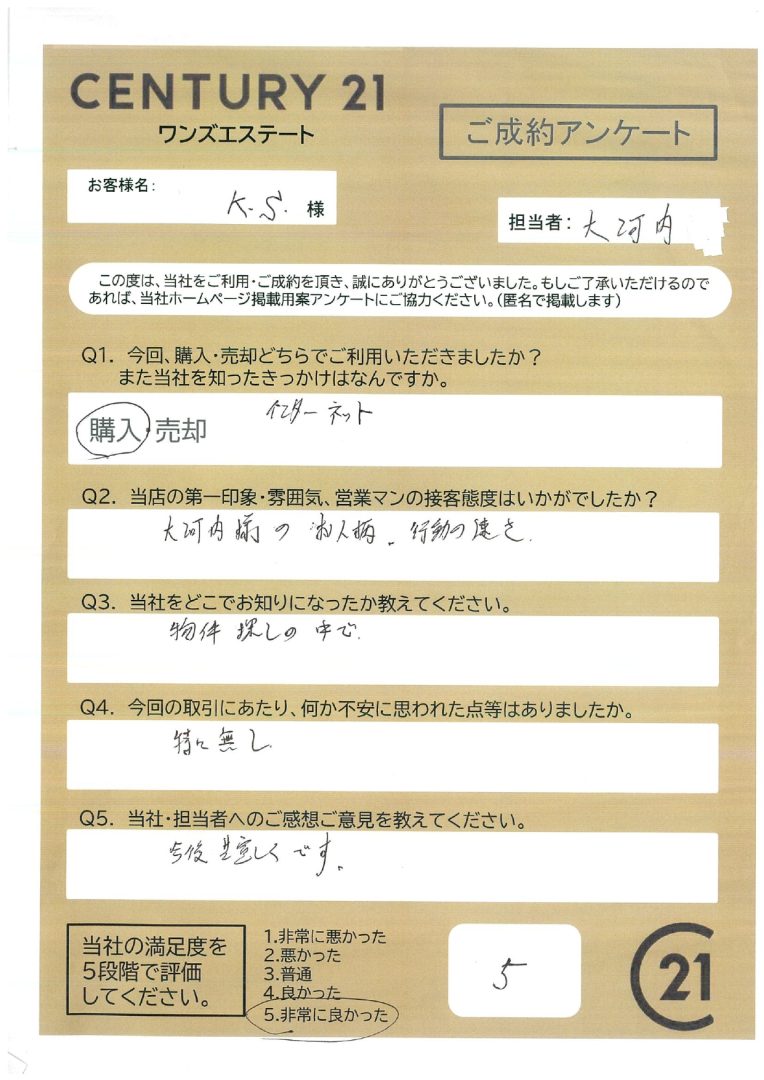 CENTURY 21
ワンズエステート
ご成約アンケート
お客様名:
K.S. 様
担当者: 大河内
この度は、当社をご利用・ご成約を頂き、誠にありがとうございました。もしご了承いただけるので
あれば、当社ホームページ掲載用案アンケートにご協力ください。(匿名で掲載します)
Q1. 今回、購入・売却どちらでご利用いただきましたか?
また当社を知ったきっかけはなんですか。
インターネット
購入・売却
Q2. 当店の第一印象・雰囲気、営業マンの接客態度はいかがでしたか?
大河内様の お人柄。行動の速さ.
Q3. 当社をどこでお知りになったか教えてください。
物件 探しの 中で.
Q4. 今回の取引にあたり、何か不安に思われた点等はありましたか。
特に無し.
Q5. 当社・担当者へのご感想ご意見を教えてください。
今後共宜しくです。
当社の満足度を
5段階で評価
してください。
1.非常に悪かった
2.悪かった
3.普通
4.良かった
5.非常に良かった
5
21